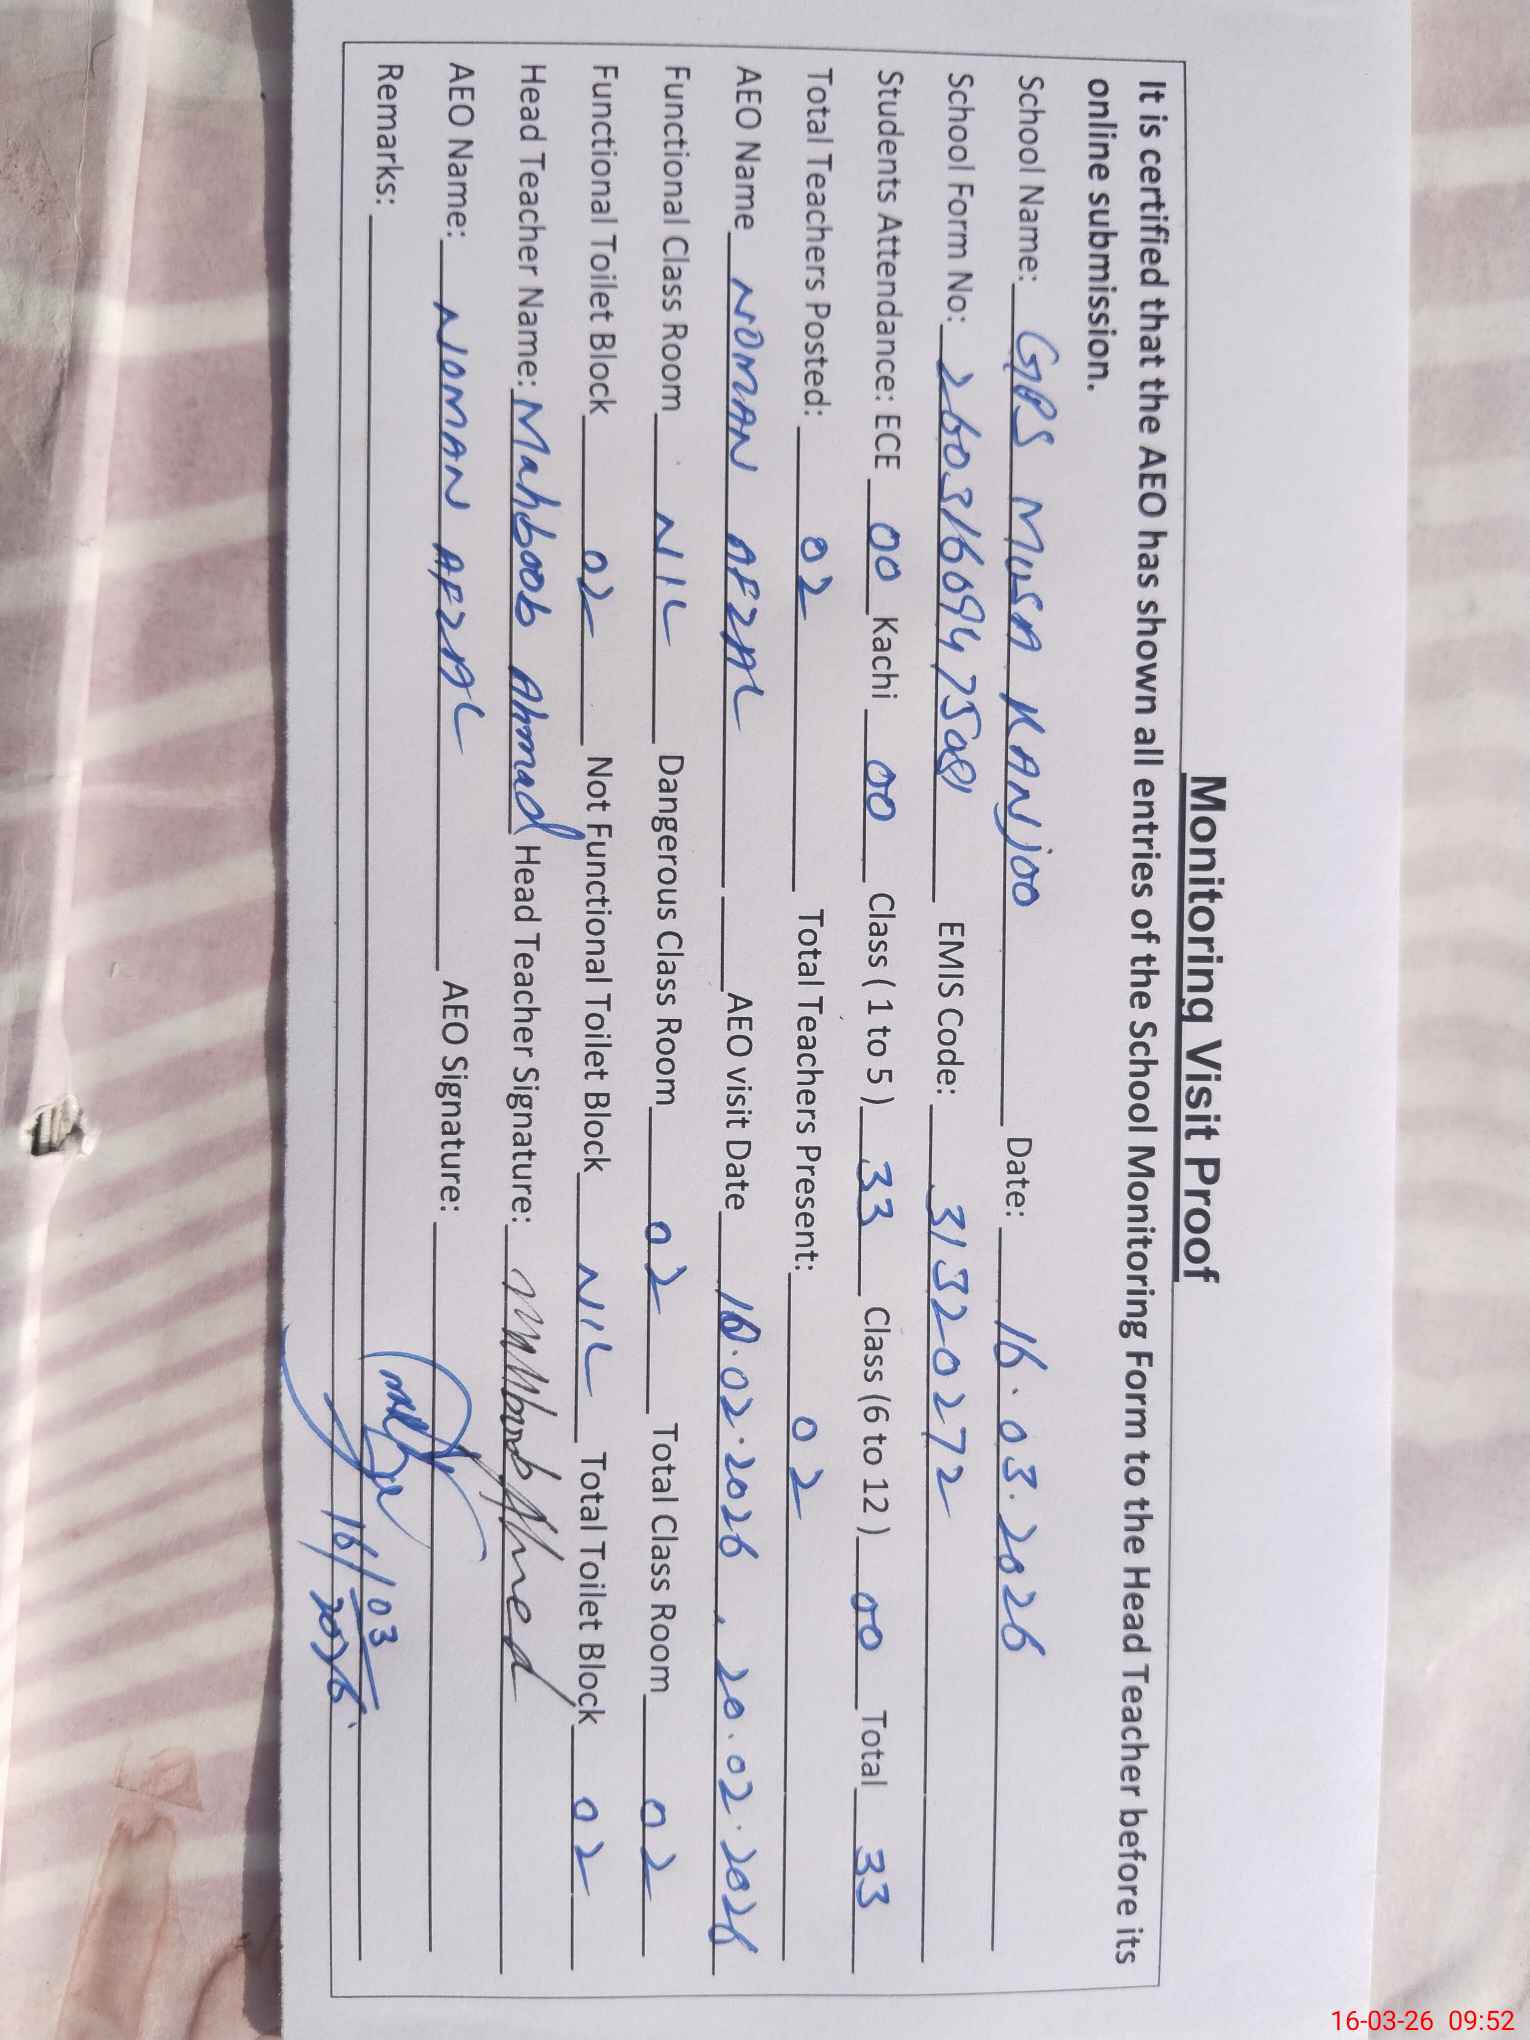 Monitoring Visit Proof
It is certified that the AEO has shown all entries of the School Monitoring Form to the Head Teacher before its
online submission.
School Name: GPS MUSA KANJOO Date: 16.03.2026
School Form No: EMIS Code: 31320272
Students Attendance: ECE 00 Kachi 00 Class ( 1 to 5 ) 33 Class (6 to 12 ) 00 Total 33
Total Teachers Posted: 02 Total Teachers Present: 02
AEO Name NOMAN AFZAL AEO visit Date .02.2026, 20.02.2026
Functional Class Room NIL Dangerous Class Room 02 Total Class Room 02
Functional Toilet Block 02 Not Functional Toilet Block NIL Total Toilet Block 02
Head Teacher Name: Mahboob Ahmad Head Teacher Signature:
AEO Name: NOMAN AFZAL AEO Signature:
Remarks: 16/03/2026
16-03-26 09:52